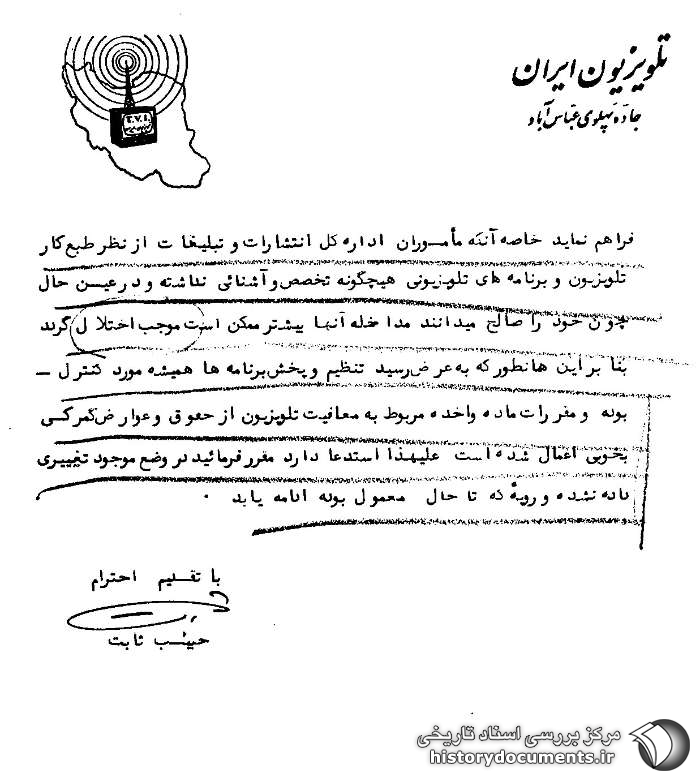 تلویزیون ایران
جاده پهلوی عباس آباد
T.V.I.
فراهم نماید خاصه آنکه مأموران اداره کل انتشارات و تبلیغات از نظر طبع کار
تلویزیون و برنامه های تلویزیونی هیچگونه تخصص و آشنائی نداشته و در عین حال
چون خود را صالح میدانند مداخله آنها بیشتر ممکن است موجب اختلال گردد
بنا بر این همانطور که به عرض رسید تنظیم و پخش برنامه ها همیشه مورد کنترل -
بوده و مقررات ماده واحده مربوط به معافیت تلویزیون از حقوق و عوارض گمرکی
بخوبی اعمال شده است علیهذا استدعا دارد مقرر فرمائید در وضع موجود تغییری
داده نشده و رویهٔ که تا حال معمول بوده ادامه یابد .
با تقدیم احترام
حبیب ثابت
مرکز بررسی اسناد تاریخی
historydocuments.ir